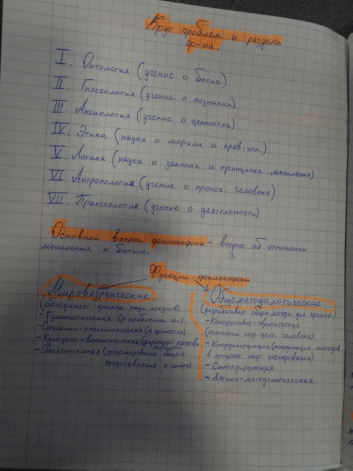 Круг проблем и разделы
ф-фии.
I. Онтология (учение о бытие)
II. Гносеология (учение о познании)
III. Аксиология (учение о ценностях)
IV. Этика (наука о морали и нрав. отн.)
V. Логика (наука о законах и принципах мышления)
VI. Антропология (учение о происх. человека)
VII. Праксеология (учение о деятельности)
Основной вопрос философии - вопрос об отношении
мышления к бытию.
Функции философии
Мировоззренческие
- Гуманистическая (о проблемах чел.)
- Социально-аксиологическая (о ценностях)
- Культурно-воспитательная
представление о мире)
Общеметодологические
- Координирующая
в процессе исследования)
- Интегрирующая
- Логико-методологическая